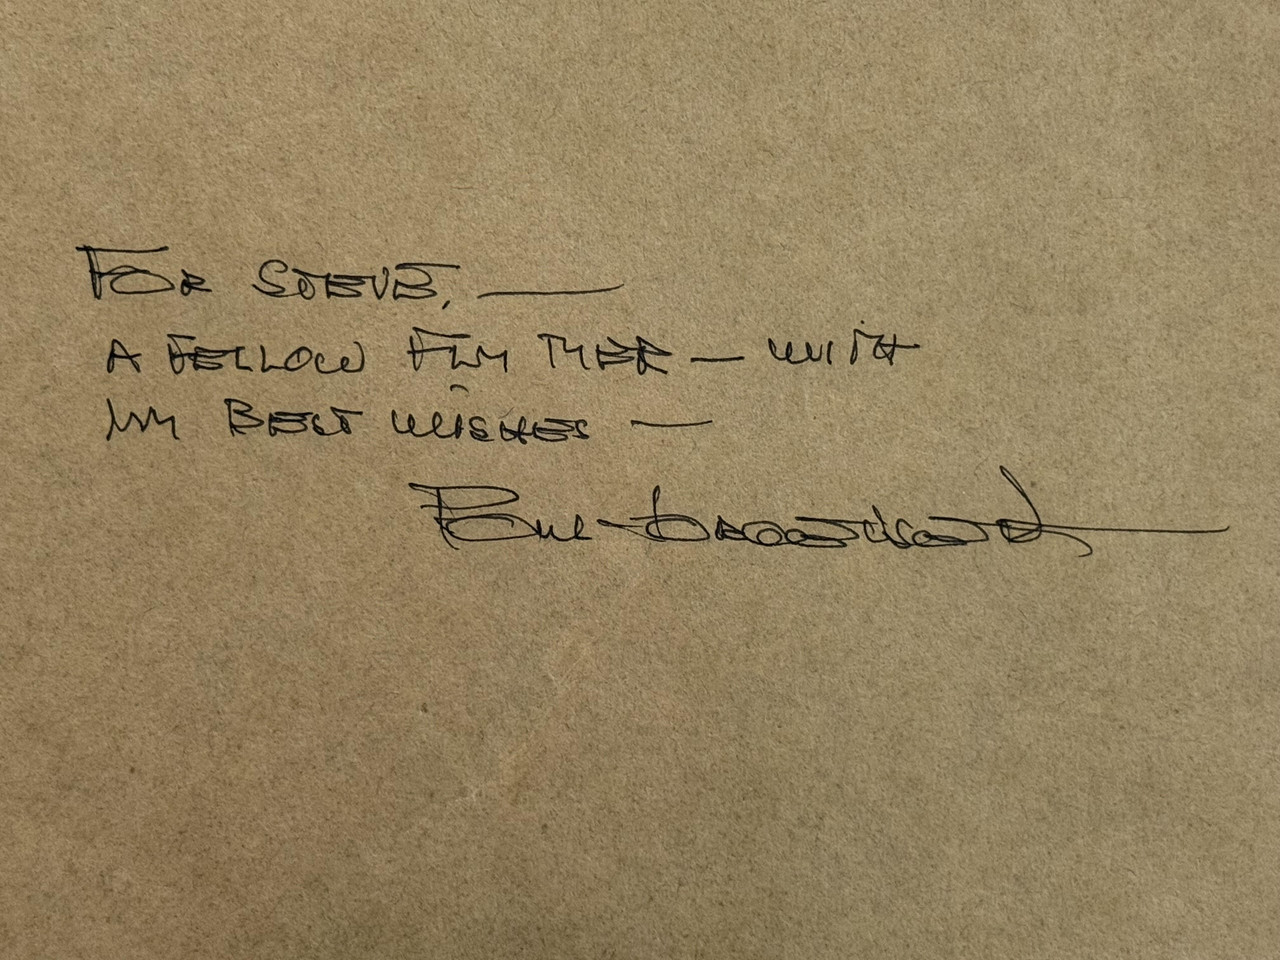 FOR STEVE, —
A FELLOW FLY TYER — WITH
MY BEST WISHES —
Paul